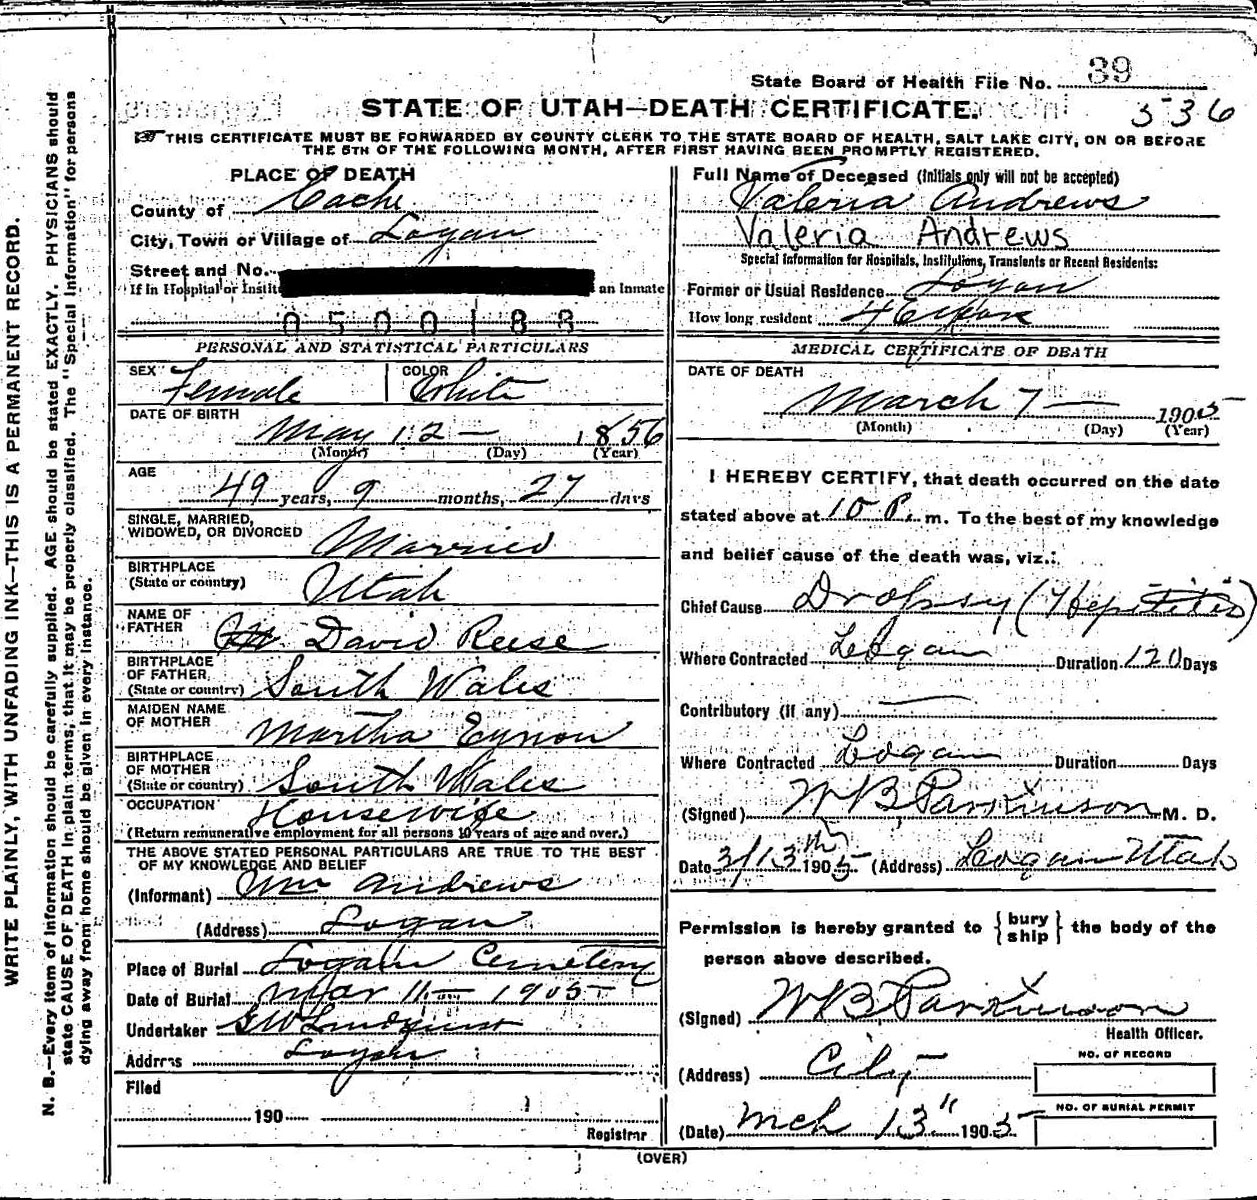 State Board of Health File No. 39
STATE OF UTAH—DEATH CERTIFICATE.
536
THIS CERTIFICATE MUST BE FORWARDED BY COUNTY CLERK TO THE STATE BOARD OF HEALTH, SALT LAKE CITY, ON OR BEFORE
THE 5TH OF THE FOLLOWING MONTH, AFTER FIRST HAVING BEEN PROMPTLY REGISTERED.
WRITE PLAINLY, WITH UNFADING INK—THIS IS A PERMANENT RECORD.
N. B.—Every item of information should be carefully supplied. AGE should be stated EXACTLY. PHYSICIANS should
state CAUSE OF DEATH in plain terms, that it may be properly classified. The "Special Information" for persons
dying away from home should be given in every instance.
PLACE OF DEATH
County of Cache
City, Town or Village of Logan
Street and No.
If in Hospital or Instit an Inmate
0500188
PERSONAL AND STATISTICAL PARTICULARS
SEX Female COLOR White
DATE OF BIRTH
May 12 — 1856
(Month) (Day) (Year)
AGE
49 years, 9 months, 27 days
SINGLE, MARRIED,
WIDOWED, OR DIVORCED Married
BIRTHPLACE
(State or country) Utah
NAME OF
FATHER David Reese
BIRTHPLACE
OF FATHER
(State or country) South Wales
MAIDEN NAME
OF MOTHER Martha Eynon
BIRTHPLACE
OF MOTHER
(State or country) South Wales
OCCUPATION Housewife
(Return remunerative employment for all persons 10 years of age and over.)
THE ABOVE STATED PERSONAL PARTICULARS ARE TRUE TO THE BEST
OF MY KNOWLEDGE AND BELIEF
(Informant) Wm Andrews
(Address) Logan
Place of Burial Logan Cemetery
Date of Burial Mar 11 — 1905
Undertaker G W Lindquist
Address Logan
Filed
190
Registrar
Full Name of Deceased (Initials only will not be accepted)
Valeria Andrews
Valeria Andrews
Special Information for Hospitals, Institutions, Transients or Recent Residents:
Former or Usual Residence Logan
How long resident
MEDICAL CERTIFICATE OF DEATH
DATE OF DEATH
March 7 — 1905
(Month) (Day) (Year)
I HEREBY CERTIFY, that death occurred on the date
stated above at 10 P. m. To the best of my knowledge
and belief cause of the death was, viz.:
Chief Cause Dropsy (Hepatitis)
Where Contracted Logan Duration 120 Days
Contributory (if any) —
Where Contracted Logan Duration Days
(Signed) W B Parkinson M. D.
Date 3/13th 1905. (Address) Logan Utah
Permission is hereby granted to { bury
ship } the body of the
person above described.
(Signed) W B Parkinson
Health Officer.
(Address) City
NO. OF RECORD
NO. OF BURIAL PERMIT
(Date) Mch 13" 1905
(OVER)